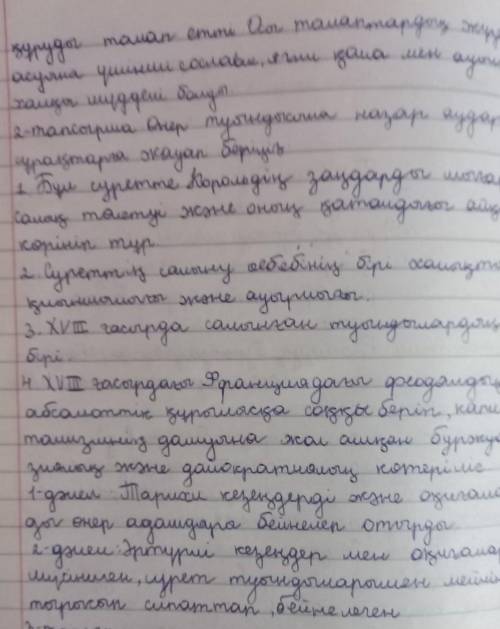 құруды талап етті Осы талаптардың жүр
асуяна үшінші сословие, яғни қала мен ауы
халқы мүдделі болды
2-тапсырма Өнер туындысына назар аудар
сұрақтарға жауап беріңіз
1. Бұл суретте Корольдің заңдарды
салық төлетуі және оның қаталдығы
көрініп тұр.
2. Суреттің салыну себебінің бірі халықт
қиыншылығы және ауыртпалығы.
3. XVIII ғасырда салынған туындылардың
бірі.
4. XVIII ғасырдағы Франциядағы феодалдық
абсолюттік құрылысқа соққы беріп, капи
тализмнің дамуына жол ашқан буржуа
зиялық және демократиялық көтеріліс
1-дәлел: Тарихи кезеңдерді және оқиғала
ды өнер адамдары бейнелеп отырды
2-дәлел: Әртүрлі кезеңдер мен оқиғалар
мүсінмен, сурет туындыларымен
тырысып сипаттап, бейнелеген